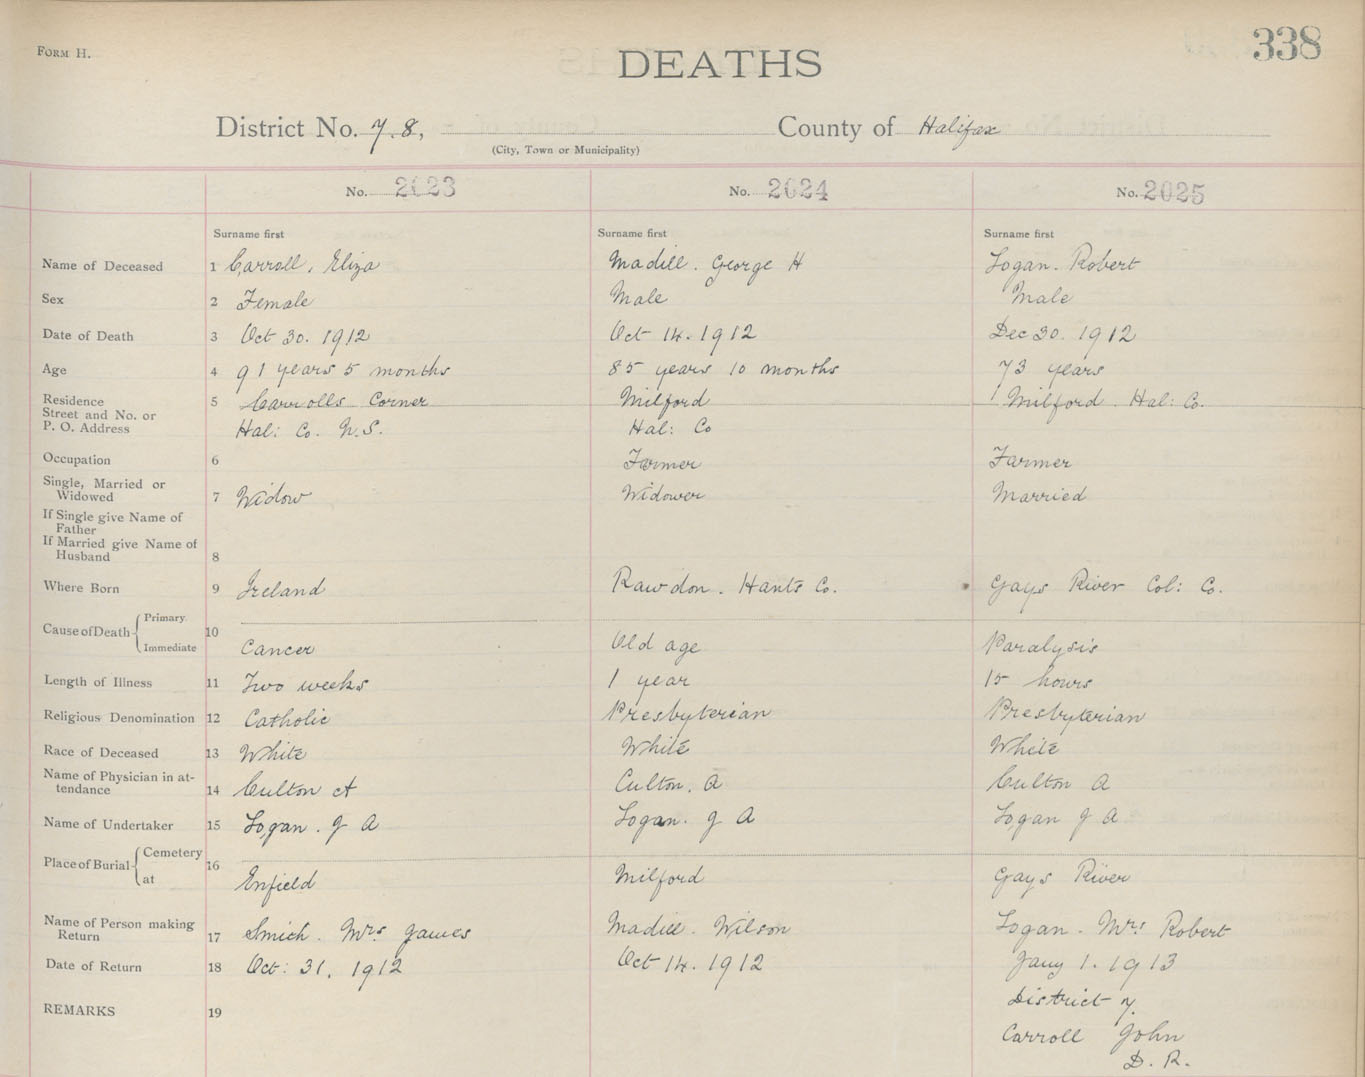 Form H.
338
DEATHS
District No. 78, County of Halifax
(City, Town or Municipality)
No. 2023 No. 2024 No. 2025
Surname first Surname first Surname first
Name of Deceased 1 Carroll, Eliza Madill. George H Logan. Robert
Sex 2 Female Male Male
Date of Death 3 Oct 30. 1912 Oct 14. 1912 Dec 30. 1912
Age 4 91 years 5 months 85 years 10 months 73 years
Residence 5 Carrolls Corner Milford Milford. Hal: Co.
Street and No. or
P. O. Address Hal: Co. N.S. Hal: Co
Occupation 6 Farmer Farmer
Single, Married or
Widowed 7 Widow Widower Married
If Single give Name of
Father
If Married give Name of
Husband 8
Where Born 9 Ireland Rawdon. Hants Co. Gays River Col: Co.
Cause of Death Primary 10
Immediate Cancer Old age Paralysis
Length of Illness 11 Two weeks 1 year 15 hours
Religious Denomination 12 Catholic Presbyterian Presbyterian
Race of Deceased 13 White White White
Name of Physician in at-
tendance 14 Culton A Culton. A Culton A
Name of Undertaker 15 Logan. J A Logan. J A Logan J A
Place of Burial Cemetery 16
at Enfield Milford Gays River
Name of Person making
Return 17 Smich. Mrs James Madill. Wilson Logan. Mrs Robert
Date of Return 18 Oct: 31, 1912 Oct 14. 1912 Jany 1. 1913
REMARKS 19 District 7.
Carroll John
D. R.